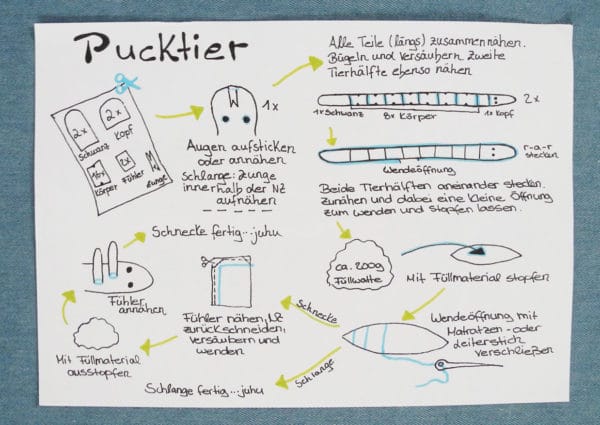 Pucktier
2x
2x
Schwanz
Kopf
16x
2x
Körper
Fühler
Zunge
1x
Augen aufsticken
oder annähen
Schlange: Zunge
innerhalb der NZ
aufnähen
Alle Teile (längs) zusammennähen.
Bügeln und Versäubern. Zweite
Tierhälfte ebenso nähen
2x
1x Schwanz
8x Körper
1x Kopf
r-a-r
stecken
Wendeöffnung
Beide Tierhälften aneinander stecken.
Zunähen und dabei eine kleine Öffnung
zum wenden und stopfen lassen.
ca. 200g
Füllwatte
Mit Füllmaterial stopfen
Wendeöffnung mit
Matratzen- oder
Leiterstich
verschließen
Schnecke
Schlange
Schlange fertig...juhu
Fühler nähen, NZ
zurückschneiden,
versäubern und
wenden
Mit Füllmaterial
ausstopfen
Fühler
annähen
Schnecke fertig...juhu